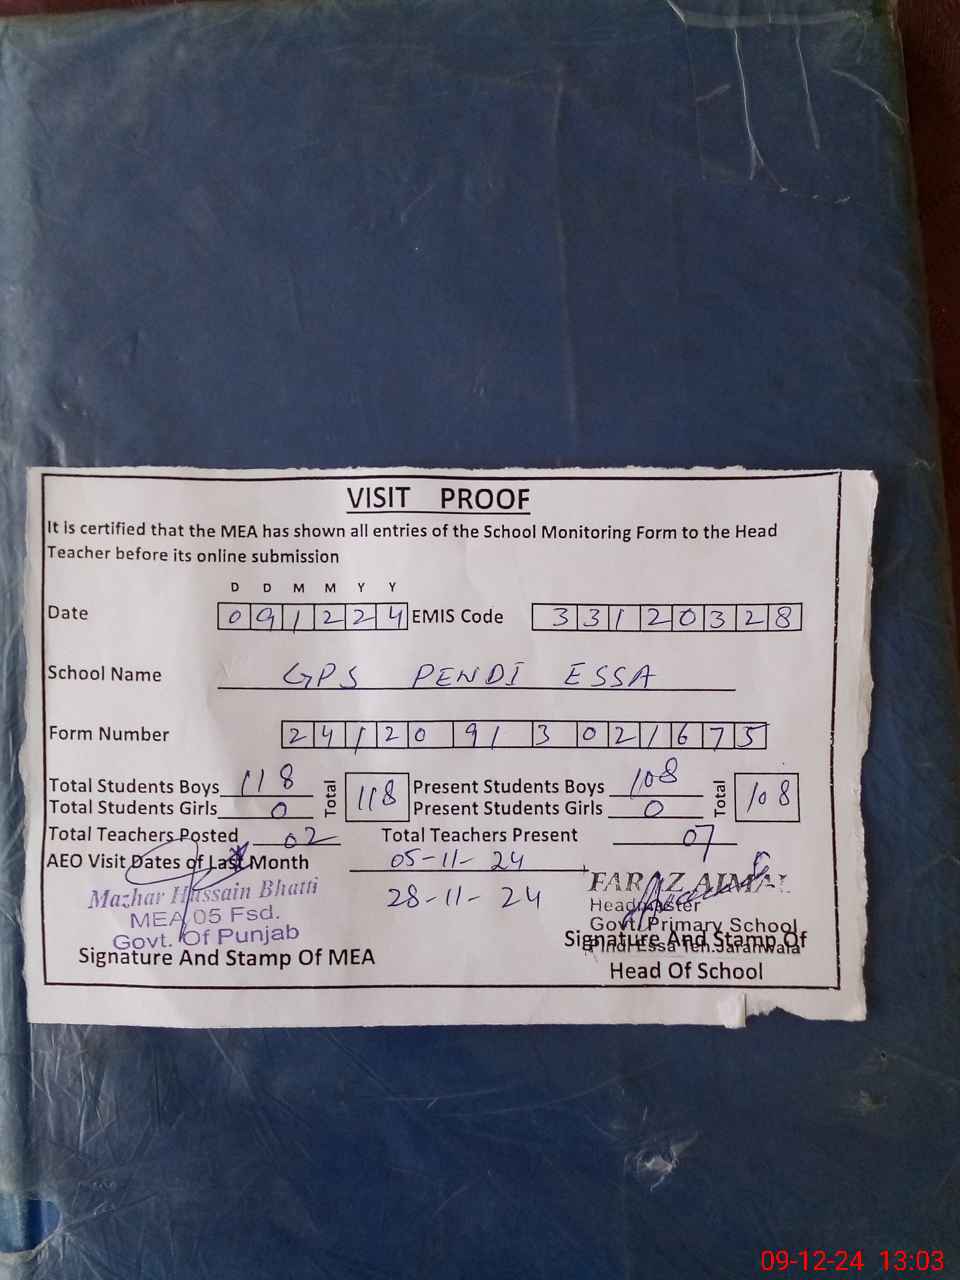 VISIT PROOF
It is certified that the MEA has shown all entries of the School Monitoring Form to the Head
Teacher before its online submission
D D M M Y Y
Date 091224 EMIS Code 33120328
School Name GPS PENDI ESSA
Form Number 24120913021675
Total Students Boys 118 Total 118 Present Students Boys 108 Total 108
Total Students Girls 0 Present Students Girls 0
Total Teachers Posted 02 Total Teachers Present 07
AEO Visit Dates of Last Month 05-11-24
28-11-24
Mazhar Hussain Bhatti
MEA 05 Fsd.
Govt. Of Punjab
Signature And Stamp Of MEA
FARAZ AJMAL
Headmaster
Govt. Primary School
Pindi Essa Teh. Jaranwala
Signature And Stamp Of
Head Of School
09-12-24 13:03